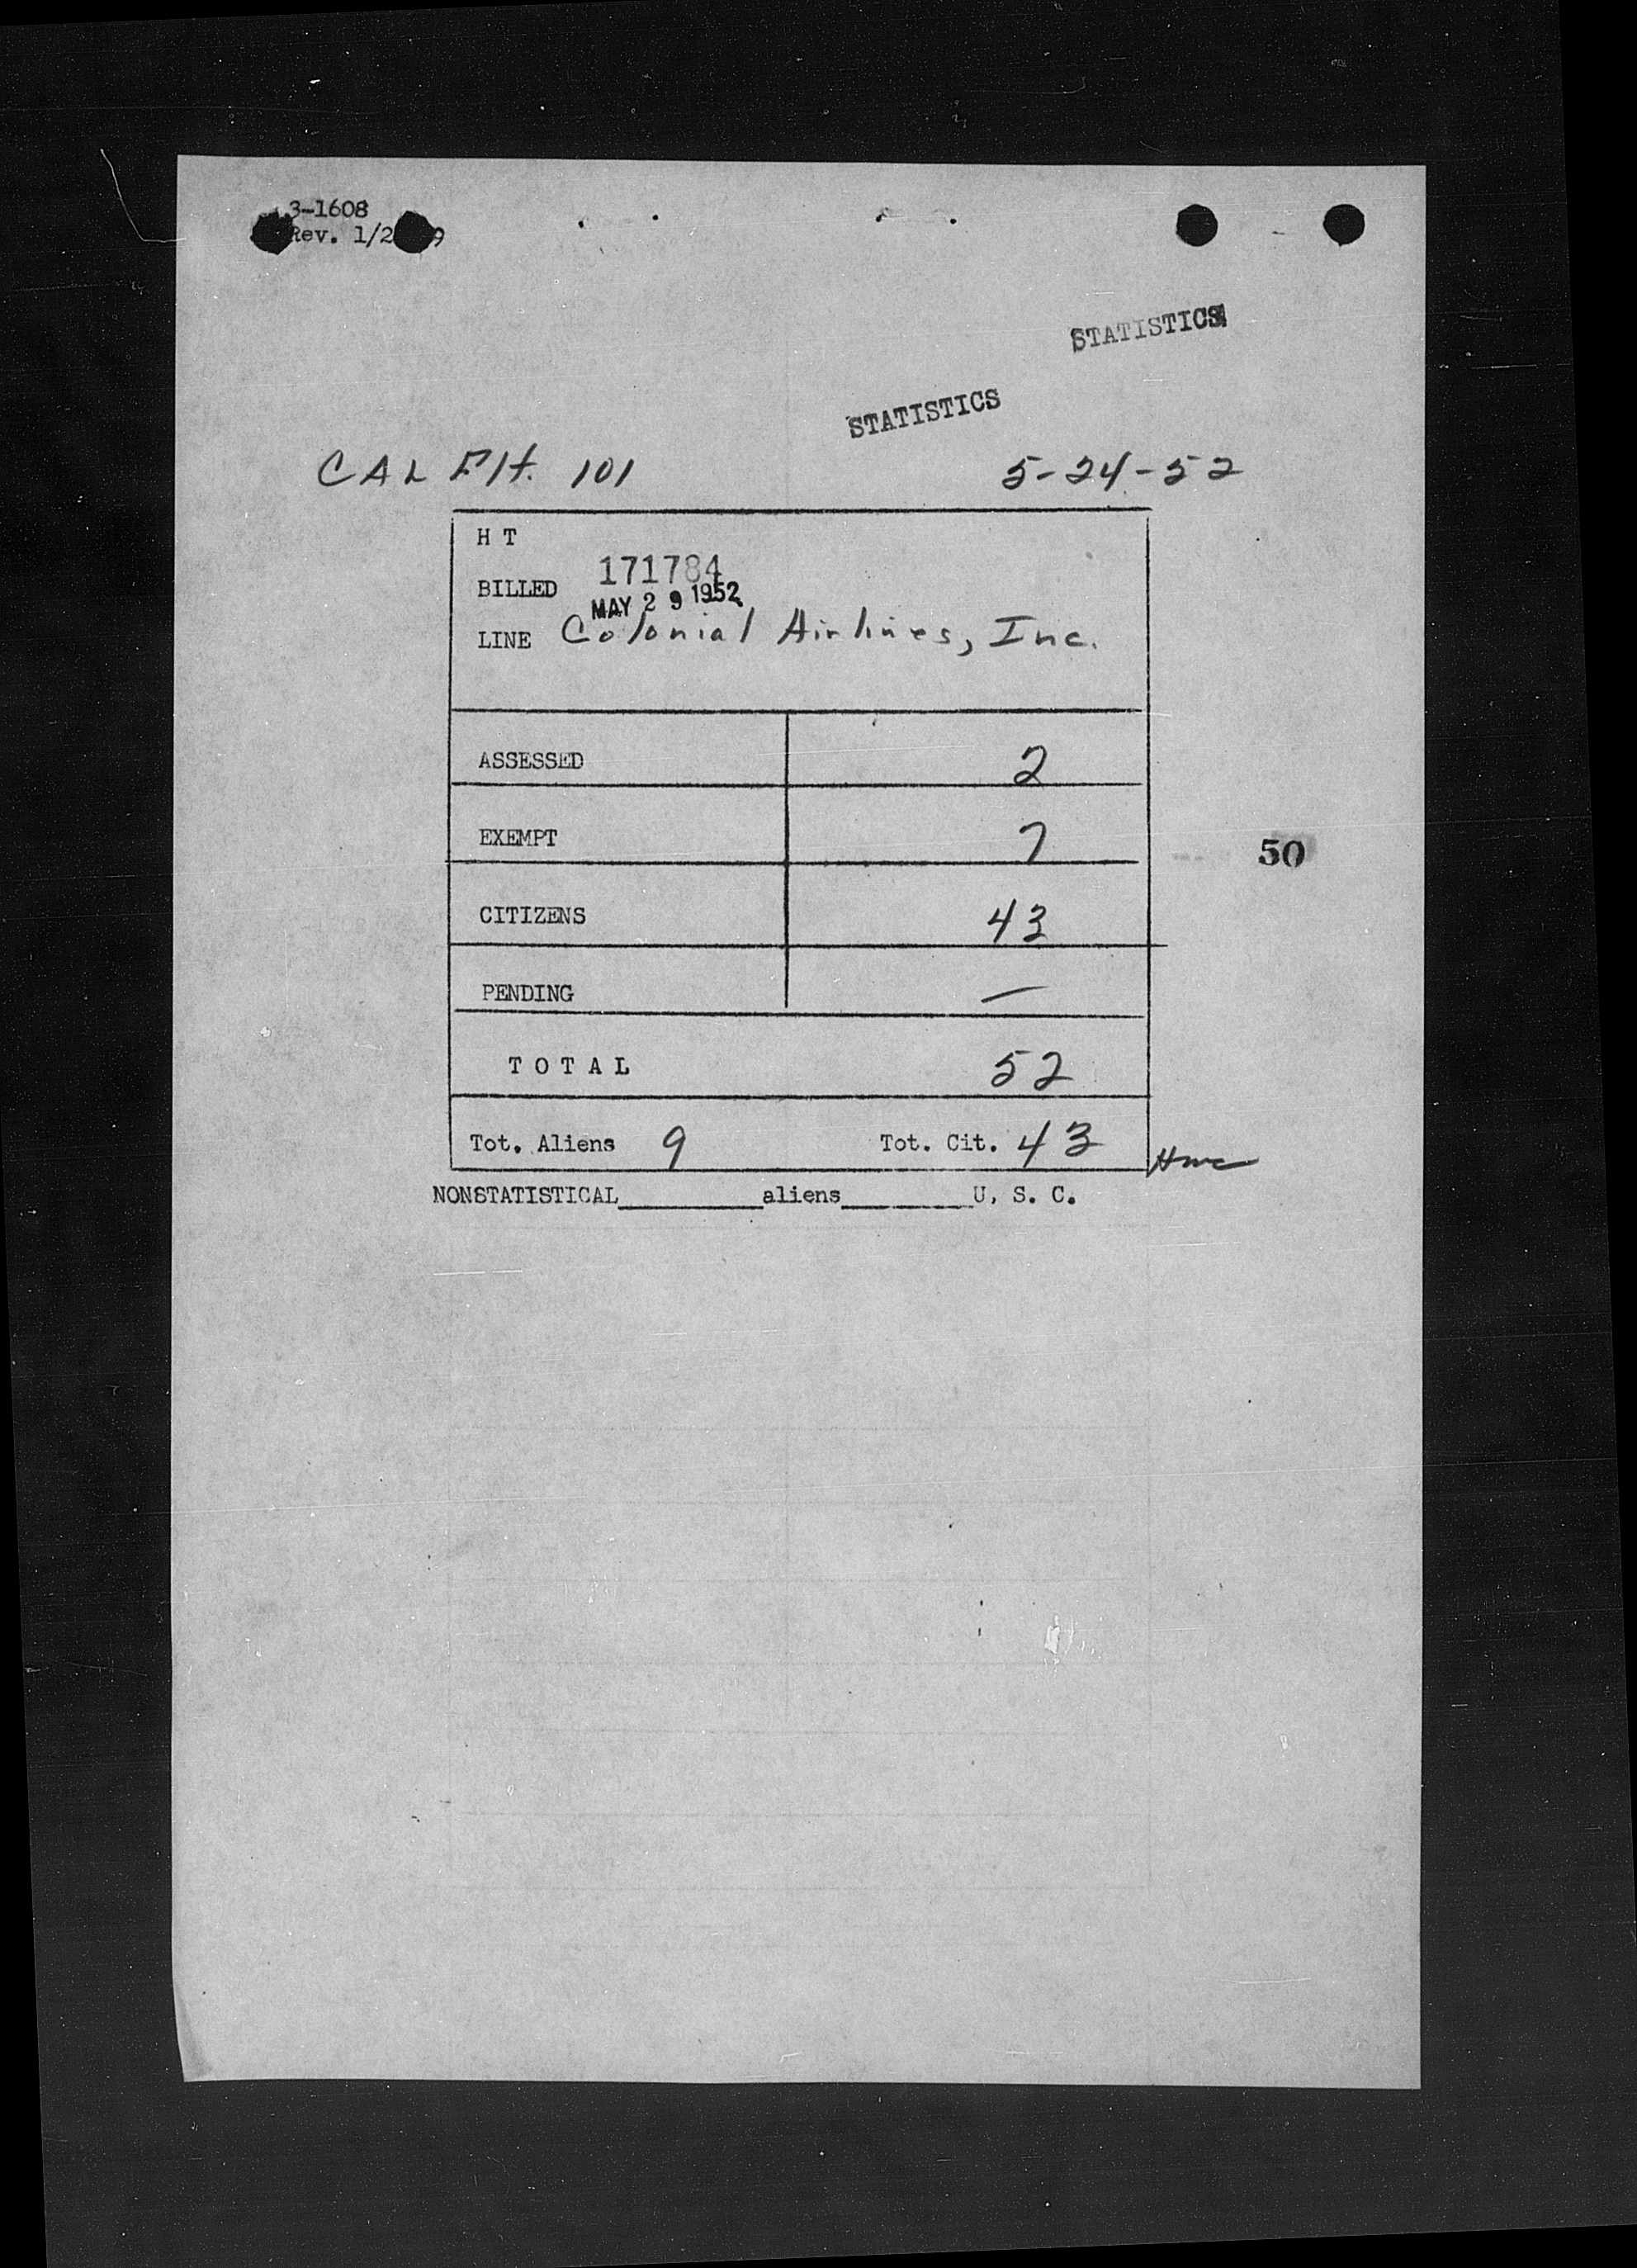 3-1608
Rev. 1/2 9
STATISTICS
STATISTICS
CAL Flt. 101 5-24-52
H T
171784
BILLED
MAY 29 1952
LINE Colonial Airlines, Inc.
ASSESSED 2
EXEMPT 7
50
CITIZENS 43
PENDING —
TOTAL 52
Tot. Aliens 9 Tot. Cit. 43
NONSTATISTICAL________aliens________U. S. C.